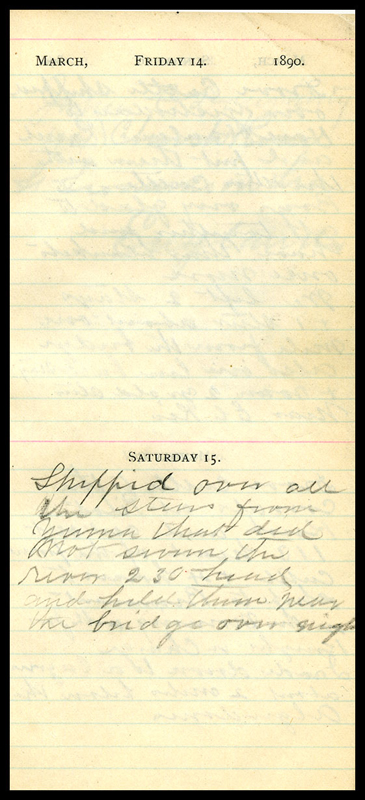 MARCH, FRIDAY 14. 1890.
SATURDAY 15.
Shippid over all
the steers from
Yuma that did
not swim the
river 230 head
and held them near
the bridge over nigh